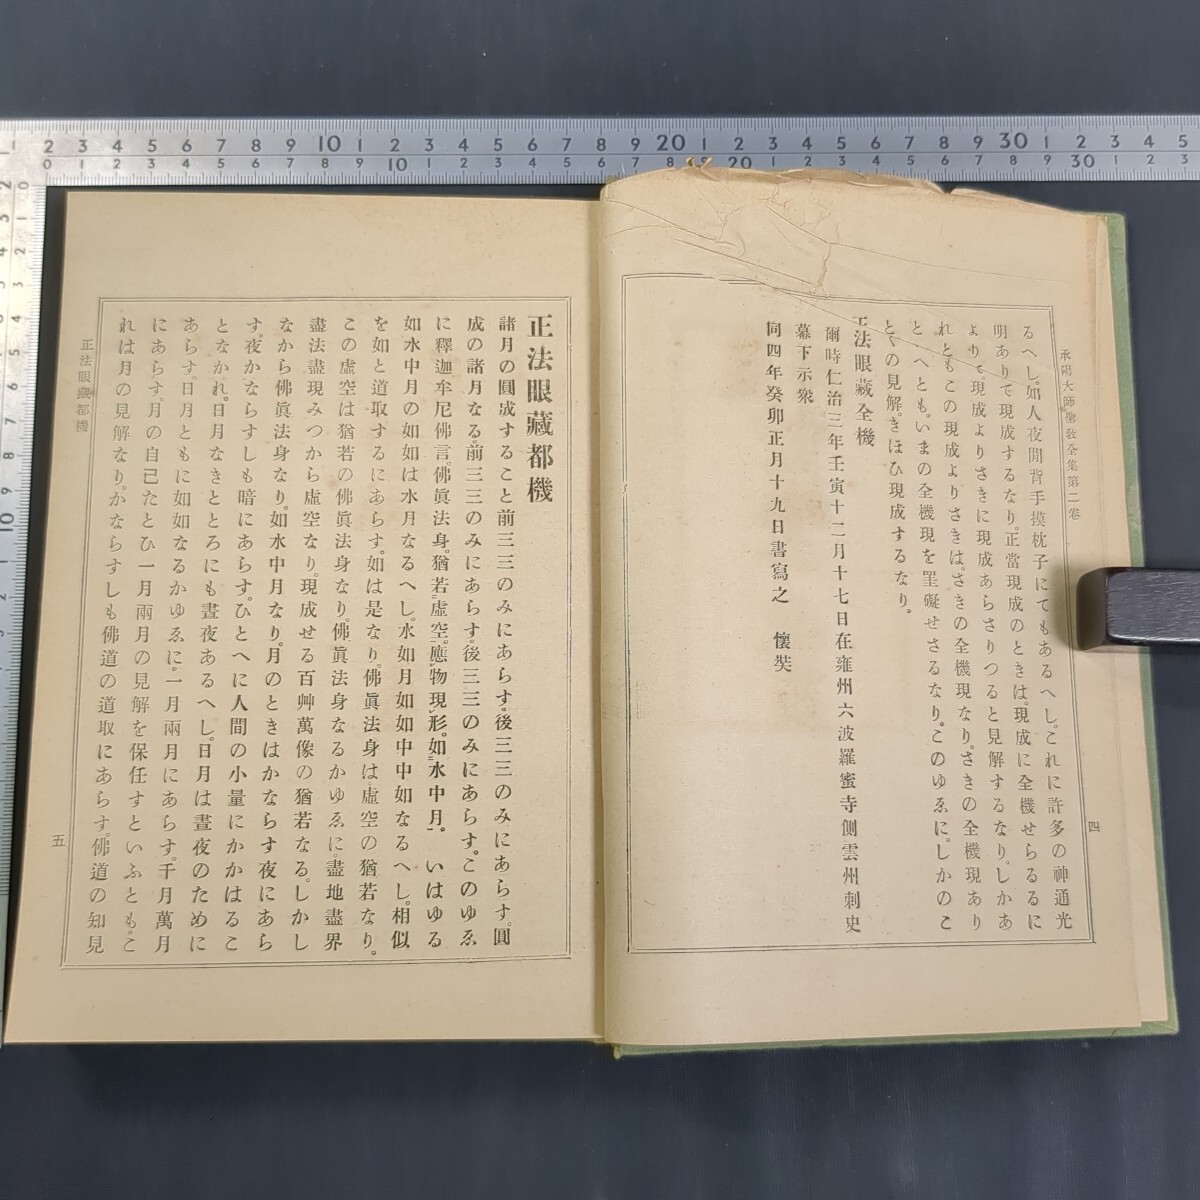 承陽大師聖敎全集第二卷
るへし。如人夜間背手摸枕子にてもあるへし。これに許多の神通光
明ありて現成するなり。正當現成のときは。現成に全機せらるるに
よりて。現成よりさきに現成あらさりつると見解するなり。しかあ
れともこの現成よりさきは。さきの全機現なり。さきの全機現あり
といへとも。いまの全機現を罣礙せさるなり。このゆゑに。しかのこ
とくの見解。きほひ現成するなり。
正法眼藏全機
爾時仁治三年壬寅十二月十七日在雍州六波羅蜜寺側雲州刺史
幕下示衆
同四年癸卯正月十九日書寫之 懷奘
四
正法眼藏都機
諸月の圓成すること前三三のみにあらす。後三三のみにあらす。圓
成の諸月なる。前三三のみにあらす。後三三のみにあらす。このゆゑ
に釋迦牟尼佛言。佛眞法身。猶若虛空。應物現形。如水中月。いはゆる
如水中月の如如は水月なるへし。水如月如如中中如なるへし。相似
を如と道取するにあらす。如は是なり。佛眞法身は虛空の猶若なり。
この虛空は猶若の佛眞法身なり。佛眞法身なるかゆゑに。盡地盡界
盡法盡現みつから虛空なり。現成せる百艸萬像の猶若なる。しかし
なから佛眞法身なり。如水中月なり。月のときはかならす夜にあら
す。夜かならすしも暗にあらす。ひとへに人間の小量にかかはるこ
となかれ。日月なきところにも晝夜あるへし。日月は晝夜のために
あらす。日月ともに如如なるかゆゑに。一月兩月にあらす。千月萬月
にあらす。月の自己たとひ一月兩月の見解を保任すといふとも。こ
れは月の見解なり。かならすしも佛道の道取にあらす。佛道の知見
正法眼藏都機
五
1 2 3 4 5 6 7 8 9 10 1 2 3 4 5 6 7 8 9 20 1 2 3 4 5 6 7 8 9 30 1 2 3 4 5